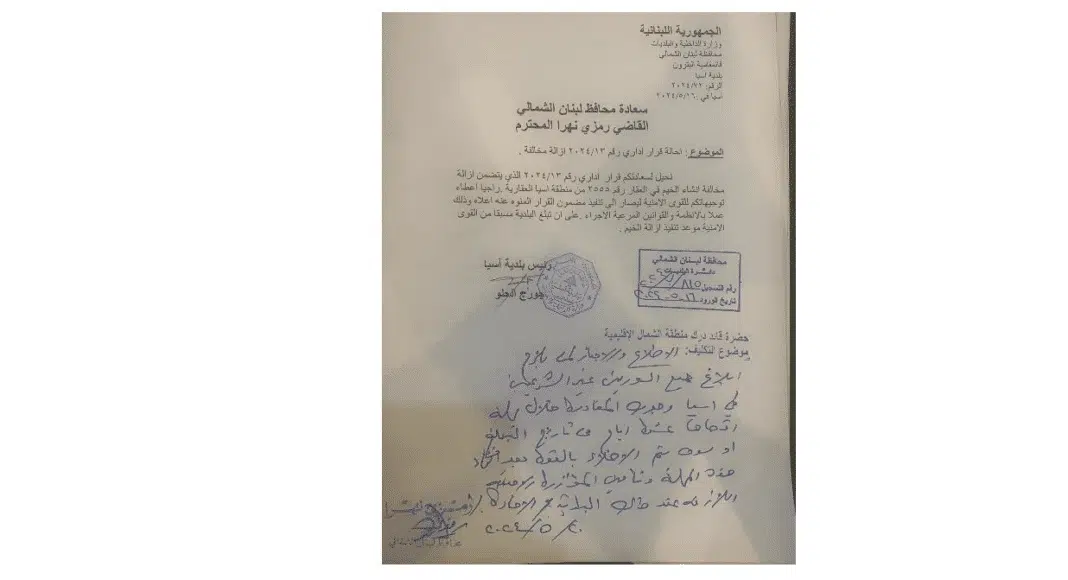 الجمهورية اللبنانية
وزارة الداخلية والبلديات
محافظة لبنان الشمالي
قائمقامية البترون
بلدية اسيا
الرقم: ٢٠٢٤/٢٢
اسيا في ٢٠٢٤/٥/١٦
سعادة محافظ لبنان الشمالي
القاضي رمزي نهرا المحترم
الموضوع : احالة قرار اداري رقم ٢٠٢٤/١٣ ازالة مخالفة .
نحيل لسعادتكم قرار اداري رقم ٢٠٢٤/١٣ الذي يتضمن ازالة
مخالفة انشاء الخيم في العقار رقم ٢٥٥٥ من منطقة اسيا العقارية .راجيا اعطاء
توجيهاتكم للقوى الامنية ليصار الى تنفيذ مضمون القرار المنوه عنه اعلاه وذلك
عملا بالانظمة والقوانين المرعية الاجراء .على ان تبلغ البلدية مسبقا من القوى
الامنية موعد تنفيذ ازالة الخيم .
رئيس بلدية أسيا
جورج الحلو
محافظة لبنان الشمالي
دائرة البلديات
رقم التسجيل
تاريخ الورود
حضرة قائد درك منطقة الشمال الاقليمية
موضوع التكليف: الاطلاع
ابلاغ جميع السوريين غير الشرعيين
في اسيا وجوب المغادرة خلال مهلة
اقصاها عشرة ايام من تاريخ التبليغ
او سوف يتم الاخلاء بالقوة بعد
هذه المهلة وتأمين المؤازرة
اللازمة عند طلب البلدية
٢٠٢٤/٥/٢٠